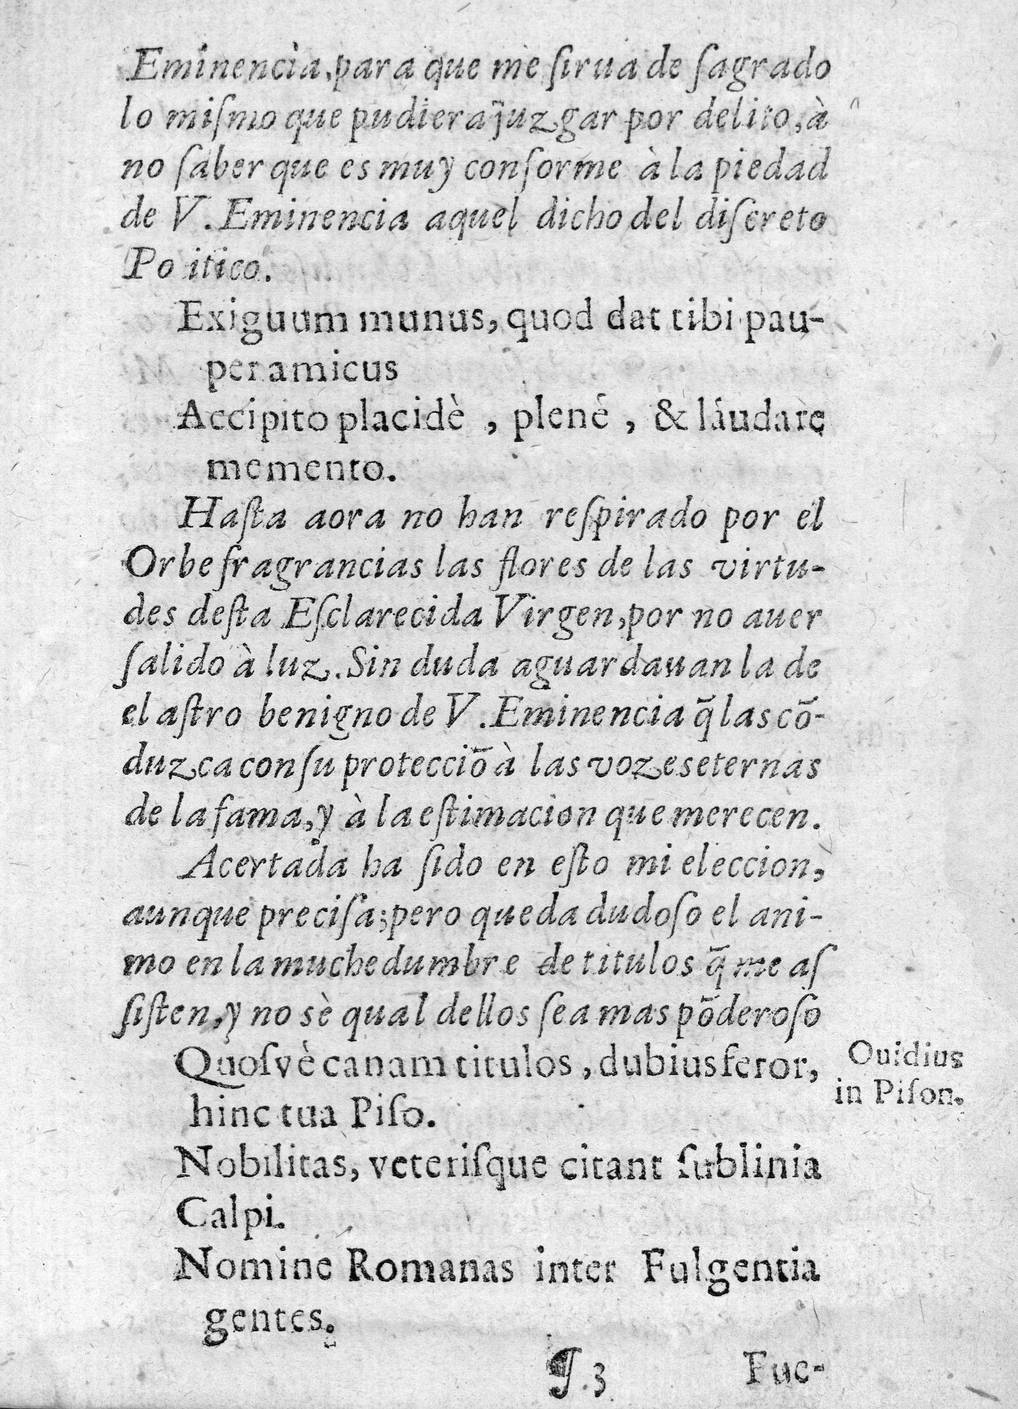 Eminencia, para que me ſirua de ſagrado
lo miſmo que pudiera juzgar por delito, à
no ſaber que es muy conforme à la piedad
de V. Eminencia aquel dicho del diſcreto
Po itico.
Exiguum munus, quod dat tibi pau-
per amicus
Accipito placidè, plenè, & láudare
memento.
Haſta aora no han reſpirado por el
Orbe fragrancias las flores de las virtu-
des deſta Eſclarecida Virgen, por no auer
ſalido à luz. Sin duda aguardauan la de
el aſtro benigno de V. Eminencia q̃ las cõ-
duzca con ſu protecciõ à las vozes eternas
de la fama, y à la eſtimacion que merecen.
Acertada ha ſido en eſto mi eleccion,
aunque preciſa; pero queda dudoſo el ani-
mo en la muchedumbre de titulos q̃ me aſ
ſiſten, y no sè qual dellos ſea mas põderoſo
Quoſvè canam titulos, dubius feror,
hinc tua Piſo.
Ouidius
in Piſon.
Nobilitas, veteriſque citant ſublinia
Calpi.
Nomine Romanas inter Fulgentia
gentes.
¶ 3
Fue-